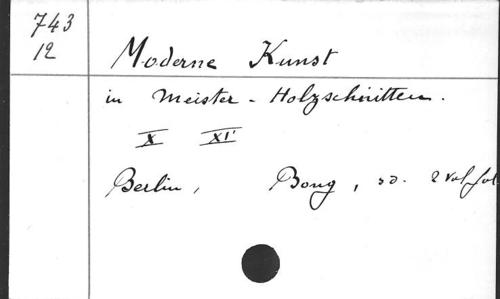 743
12
Moderne Kunst
in Meister - Holzschnitten.
X XI
Berlin, Bong, sd. 2 vol fol.